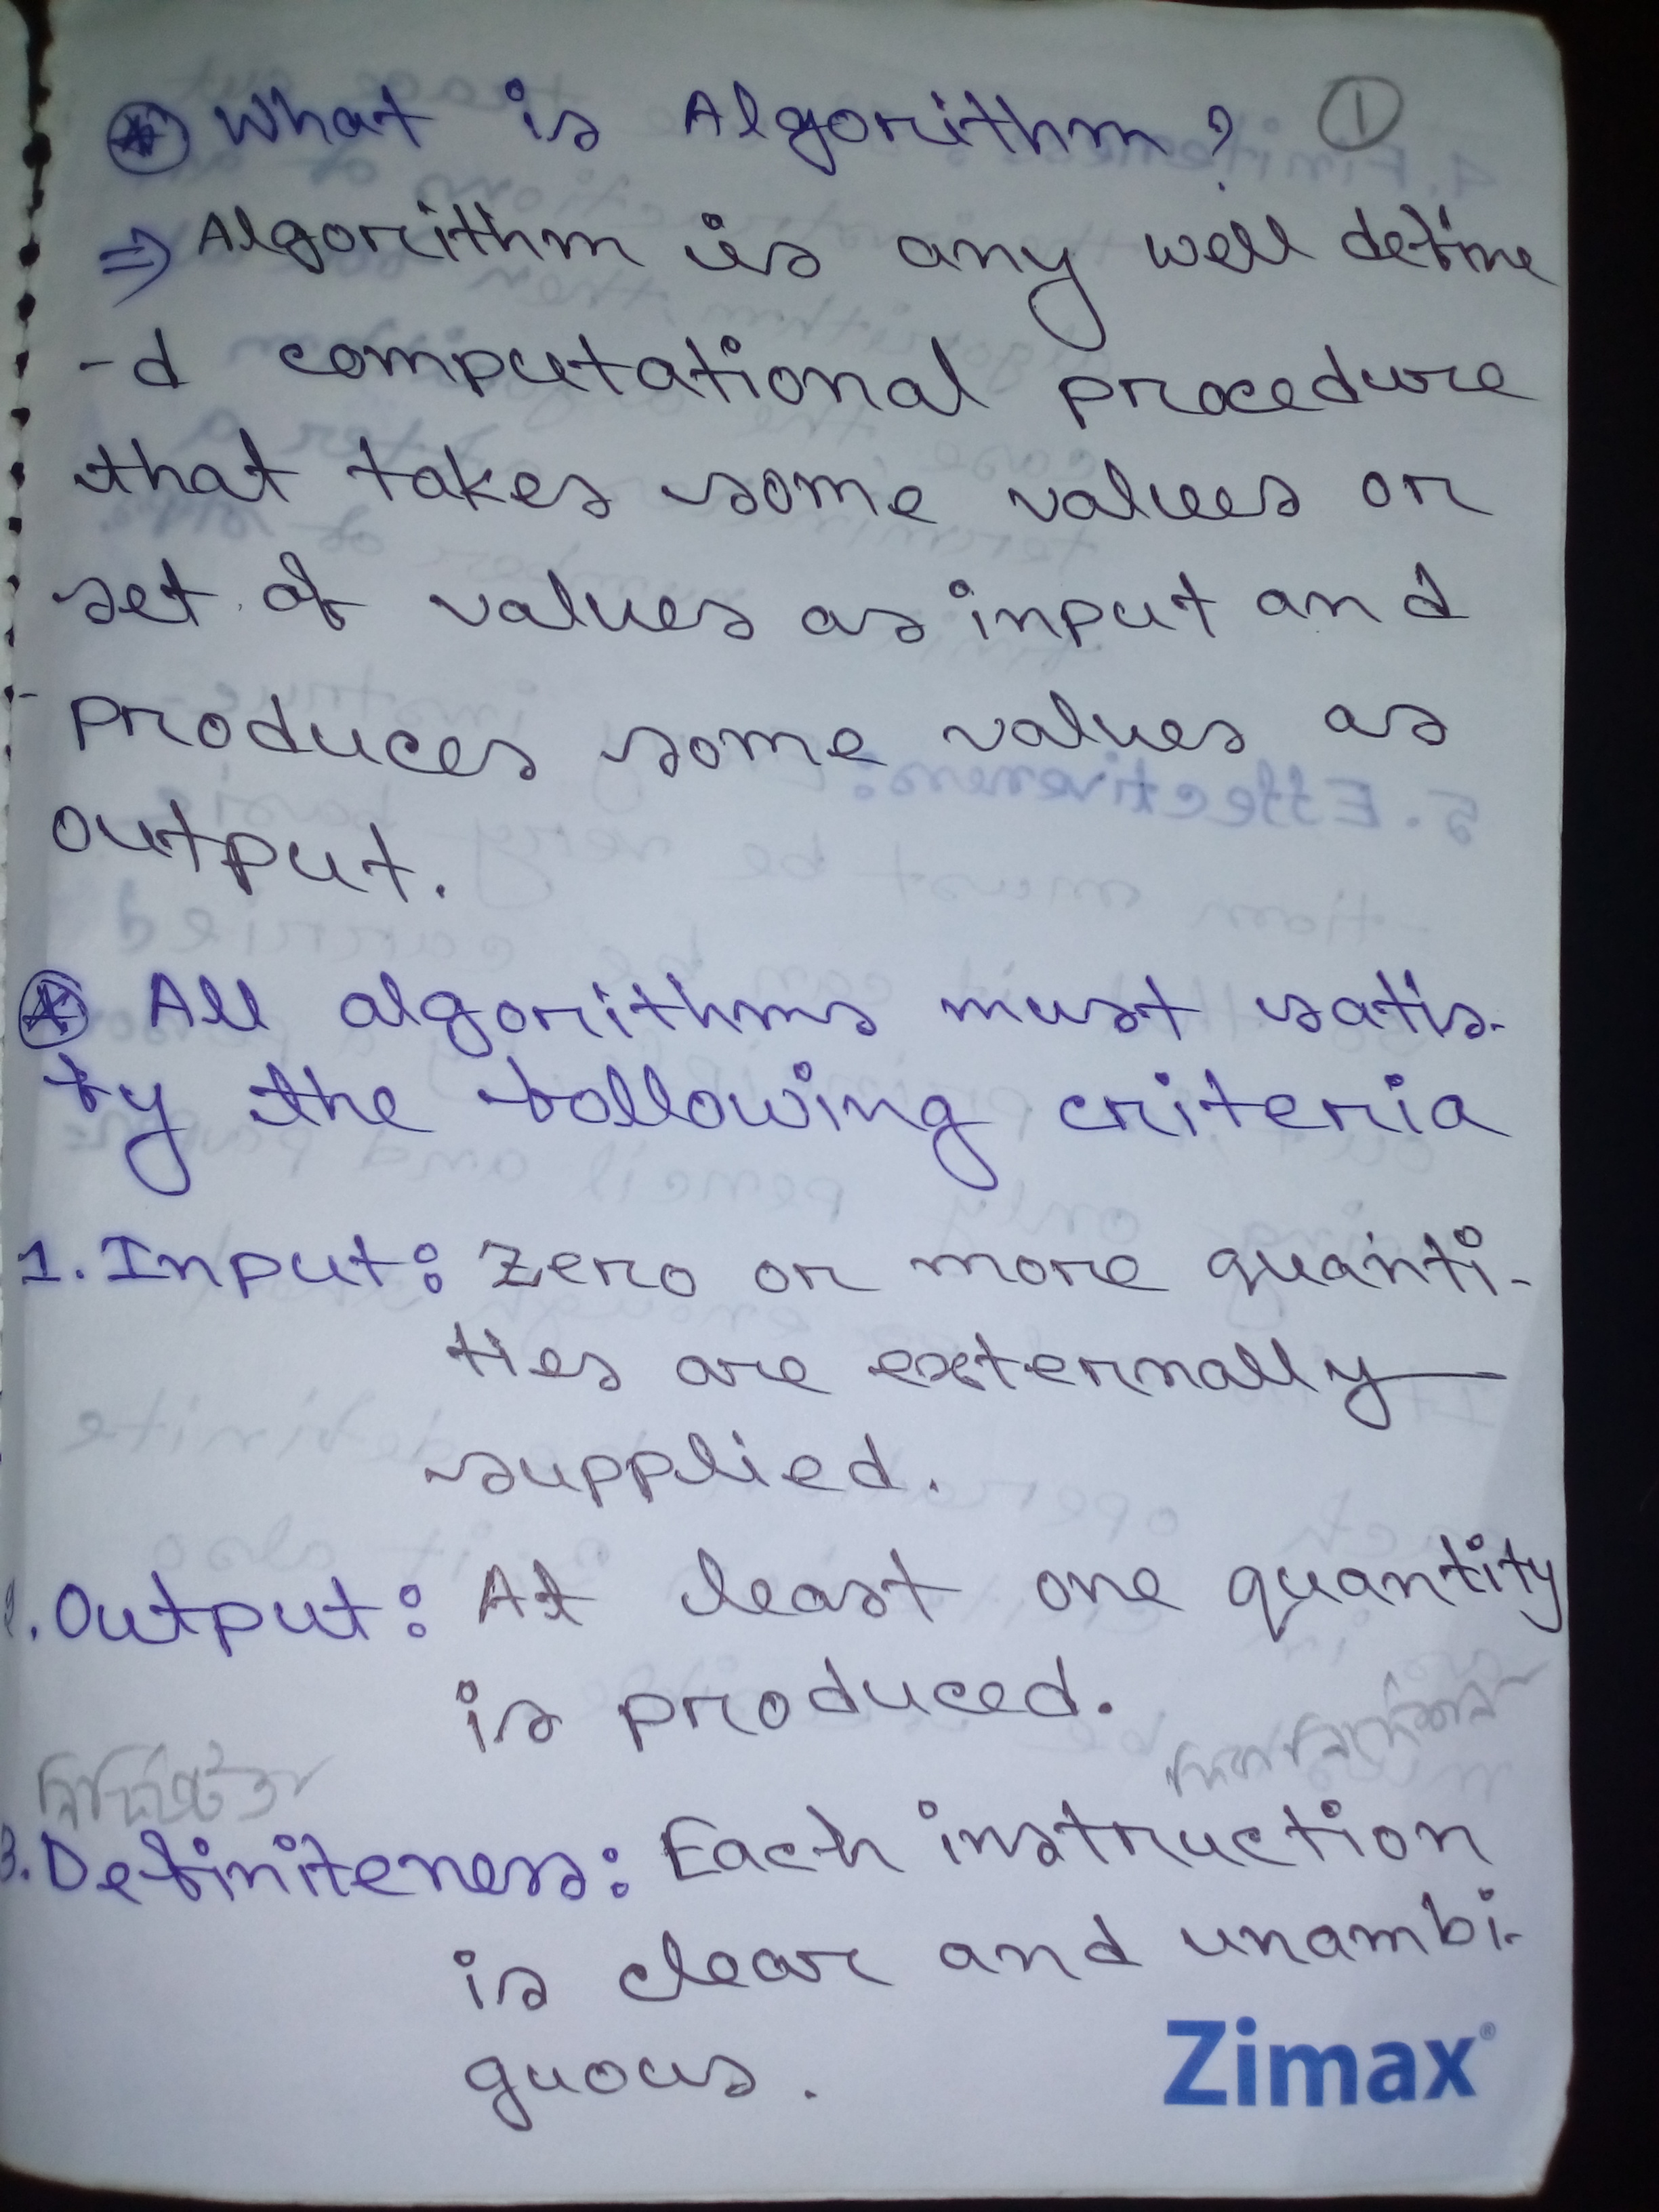 What is Algorithm? 1
⇒ Algorithm is any well define
-d computational procedure
that takes some values or
set of values as input and
produces some values as
output.
All algorithms must satis-
fy the following criteria
1. Input: Zero or more quanti-
ties are externally
supplied.
. Output: At least one quantity
is produced.
3. Definiteness: Each instruction
is clear and unambi-
guous.
Zimax